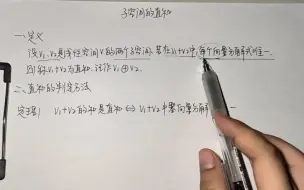 子空间的直和
一、定义
设V₁,V₂是线性空间V的两个子空间,若在V₁+V₂中,每个向量分解式唯一.
则称V₁+V₂为直和,记作V₁⊕V₂.
二、直和的判定方法
定理1 V₁+V₂的和是直和 ⇔ V₁+V₂中零向量分解